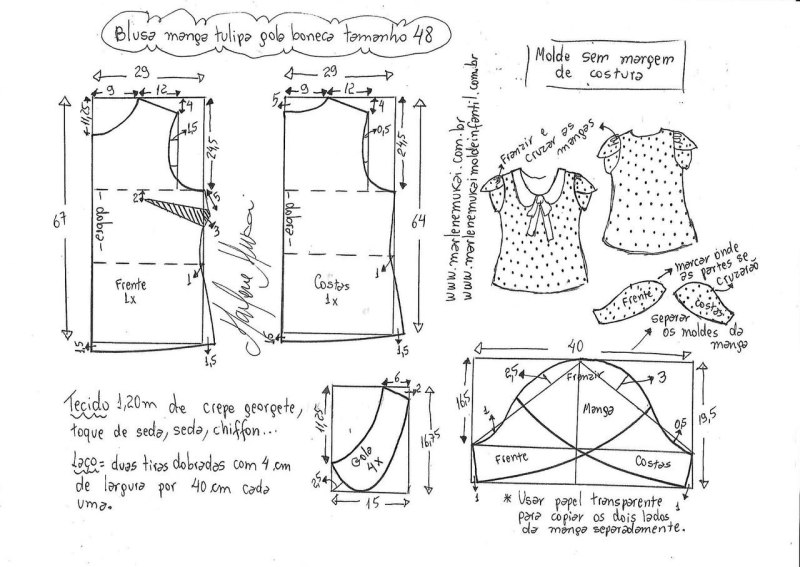 Blusa manga tulipa gola boneca tamanho 48
Molde sem margem
de costura
29
9
12
4
11,25
1,5
24,5
67
dobra
2
5
3
1
Frente
1x
1,5
1,5
Marlene Mukai
29
5
9
12
4
0,5
24,5
64
dobra
1
Costas
1x
1,5
1,5
www.marlenemukai.com.br
www.marlenemukaimoldeinfantil.com.br
Franzir e
cruzar as
mangas
marcar onde
as partes se
cruzarão
Frente
Costas
separar
os moldes da
manga
40
16,5
2,5
Franzir
3
Manga
1
0,5
19,5
Frente
Costas
1
1
* Usar papel transparente
para copiar os dois lados
da manga separadamente.
6
2
11,25
Gola
4x
16,75
2,5
15
Tecido 1,20m de crepe georgete,
toque de seda, seda, chiffon...
Laço = duas tiras dobradas com 4 cm
de largura por 40 cm cada
uma.